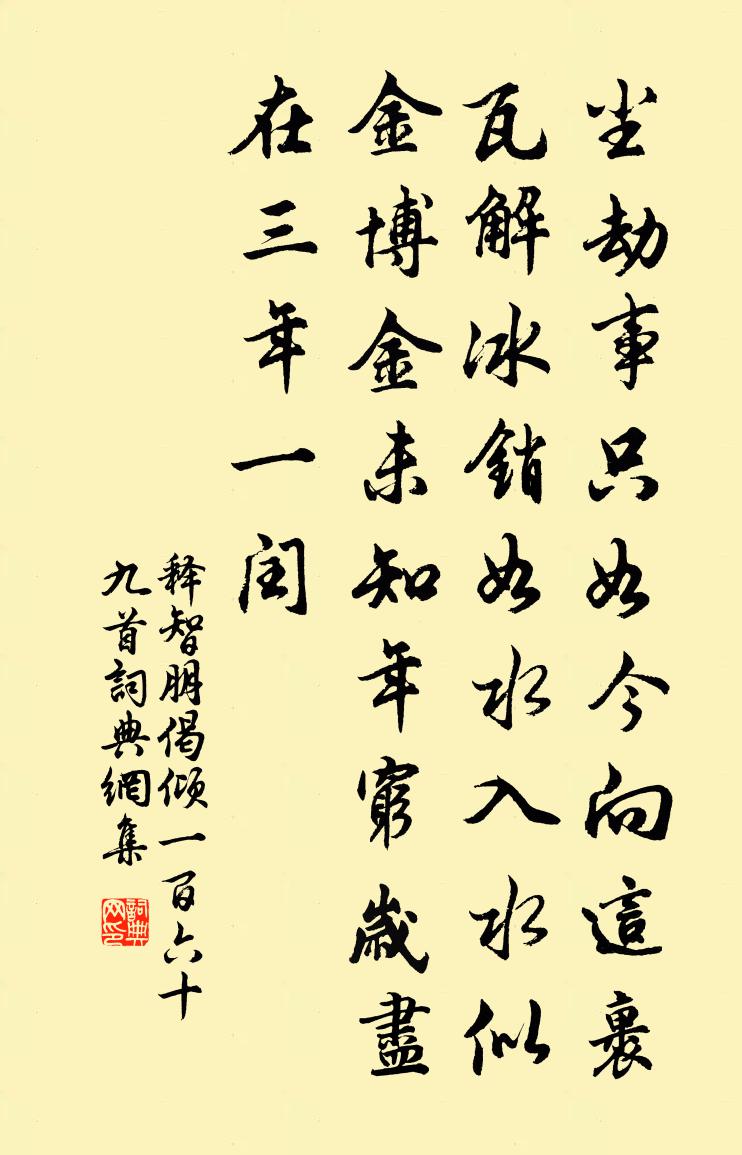 尘劫事只如今向這裏
瓦解冰銷如水入水似
金博金未知年窮歲盡
在三年一闰
释智朋偈倾一百六十
九首詞典網集
詞典网印